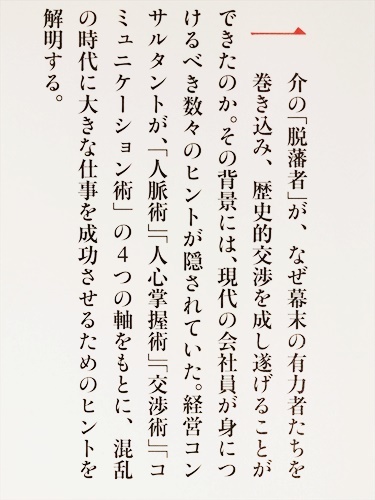 一介の「脱藩者」が、なぜ幕末の有力者たちを
巻き込み、歴史的交渉を成し遂げることが
できたのか。その背景には、現代の会社員が身につ
けるべき数々のヒントが隠されていた。経営コン
サルタントが、「人脈術」「人心掌握術」「交渉術」「コ
ミュニケーション術」の４つの軸をもとに、混乱
の時代に大きな仕事を成功させるためのヒントを
解明する。